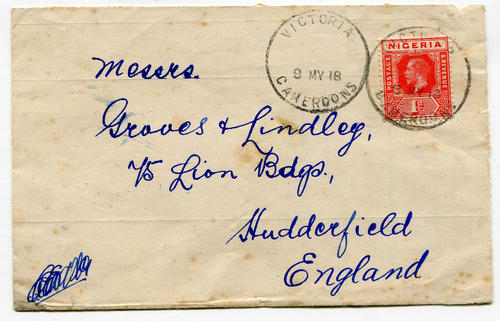 VICTORIA
9 MY 18
CAMEROONS
NIGERIA
POSTAGE
REVENUE
1d
Messrs
Groves & Lindley,
75 Lion Bdgs,
Hudderfield
England